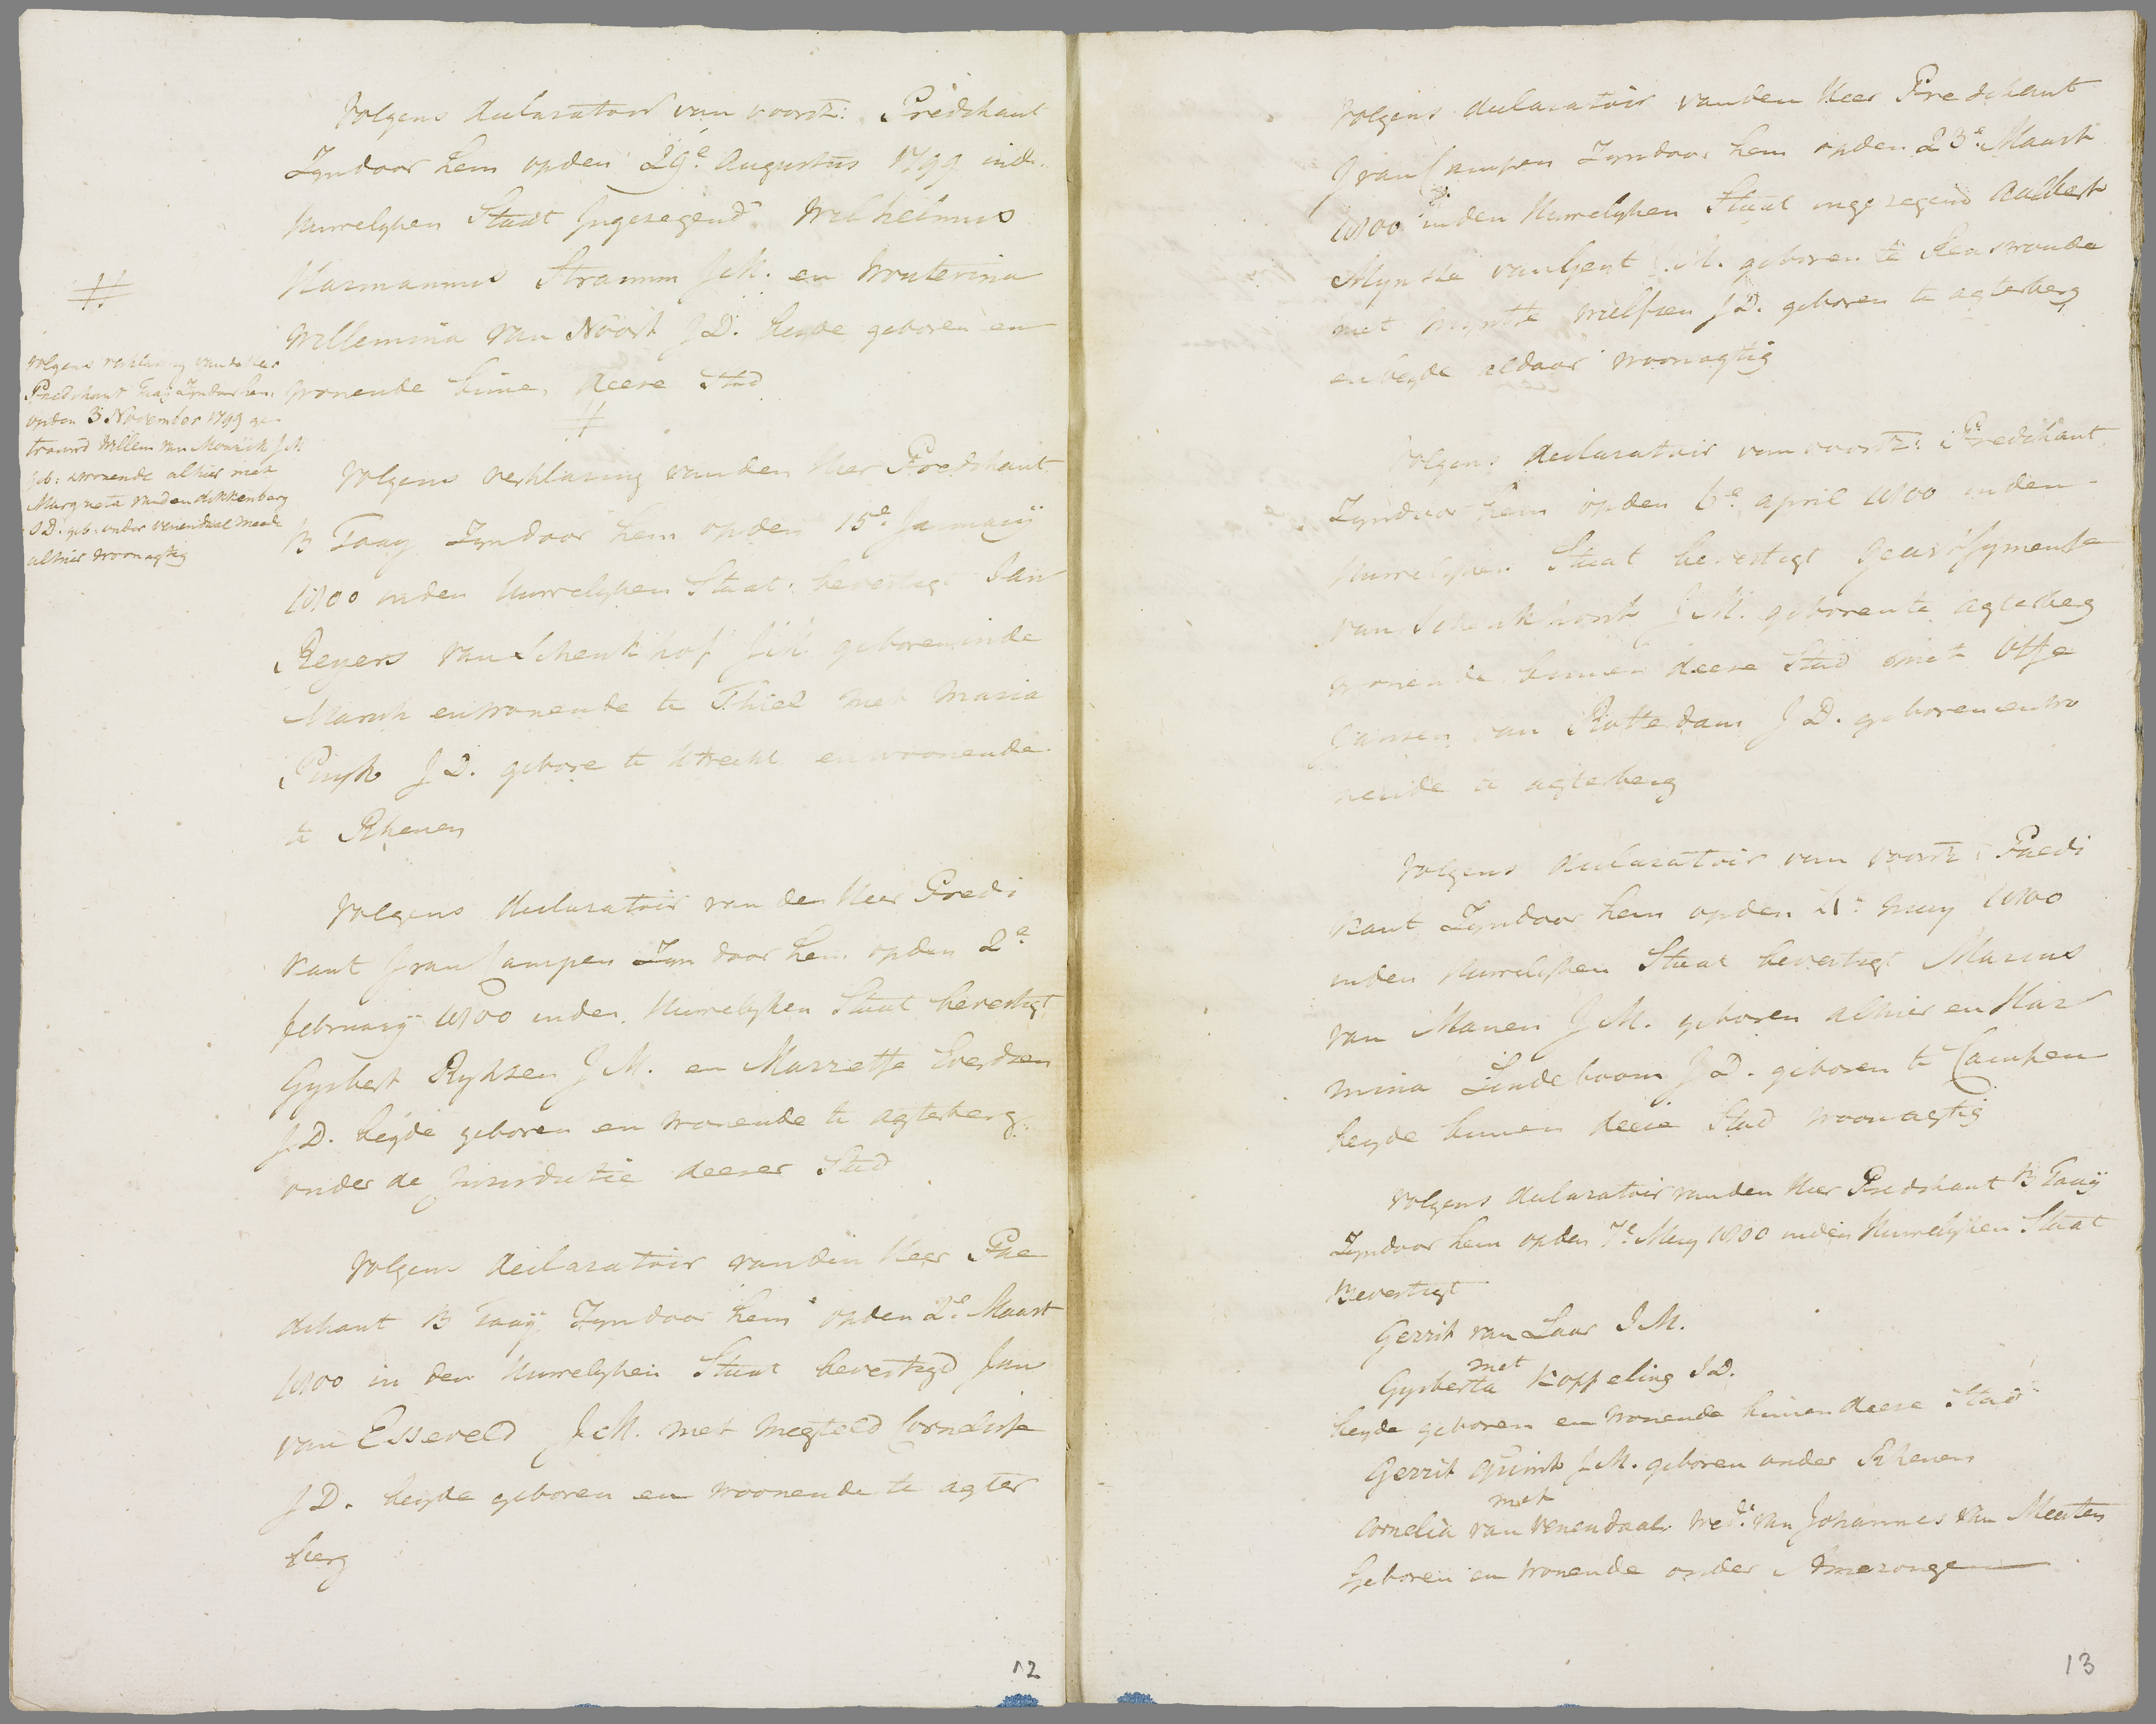 Volgens declaratoir van voorsz: Predikant
Zyn door hem op den 29e Augustus 1799 in de
Huwelyken Staat Ingezegend Wilhelmus
Harmannus Stramm J:M. en Wouterina
Willemina van Noort J D. beyde geboren en
wonende binne, deese Stad
#
#
Volgens verklaring van de Heer
Predikant Taay Zyn door hem
op den 3 November 1799 ge-
trouwd Willem van Mourik J M
geb: & wonende alhier met
Margreta van den Dikkenberg
J D. geb. onder Venendaal mede
alhier woonagtig
Volgens verklaring van den Heer Predikant
B Taay Zyn door hem op den 15e January
1800 in den Huwelyken Staat bevestigt Jan
Reyers van Schenkhof J:M. geboren in de
Marsch en wonende te Thiel met Maria
J D. gebore te Utrecht en woonende
te Rhenen
Volgens declaratoir van den Heer Predi
kant J van Campen Zyn door hem op den 2e
february 1800 in den Huwelyken Staat bevestigt
Gysbert Ryksen J M. en Marretje Evertsen
J D. beyde geboren en wonende te agterberg
onder de Jurisdictie deeser Stad
Volgens declaratoir van den Heer Pre
dikant B Taay Zyn door hem op den 2e Maart
1800 in den Huwelyken Staat bevestigd Jan
van Esseveld J:M. met Megteld Cornelisse
J D. beyde geboren en woonende te agter
berg
12
Volgens declaratoir van den Heer Predikant
J van Campen Zyn door hem op den 23e Maart
1800 in den Huwelyken Staat ingezegend Aalbert
van Gent J.M. geboren te Renswoude
met J D. geboren te agterberg
en beyde aldaar woonagtig
Volgens declaratoir van voorsz: Predikant
Zyn door hem op den 6e april 1800 in den
Huwelyken Staat bevestigt
van Schenkhorst J M. geboren te agterberg
wonende binnen deese Stad met
Jansen van Rotterdam J D. geboren en wo
nende te agterberg
Volgens declaratoir van voorsz: Predi
kant Zyn door hem op den may 1800
in den Huwelyken Staat bevestigt Marinus
van Manen J M. geboren alhier en Har
mina Lindeboom J D. geboren te Campen
beyde binnen deese Stad woonagtig
Volgens declaratoir van den Heer Predikant B Taay
Zyn door hem op den 7e May 1800 in den Huwelyken Staat
Bevestigt
Gerrit van Laar J.M.
met
Gysberta Koppeling J.D.
beyde geboren en wonende binnen deese Stad
Gerrit Quint J M. geboren onder Rhenen
met
Cornelia van Venendaal wede. van Johannes van Meerten
Geboren en wonende onder Amerongen
13